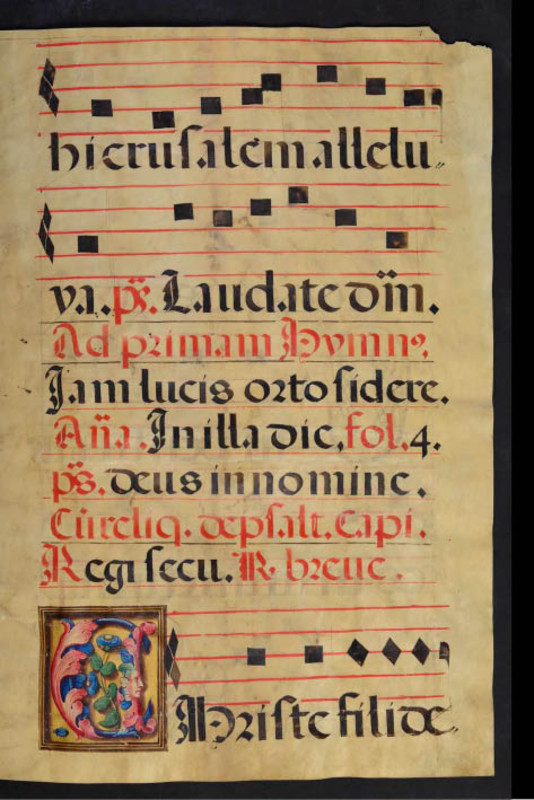 hierusalem allelu
ya. ps. Laudate dñm.
Ad primam Hymnꝰ.
Jam lucis orto sidere.
Aña. In illa die, fol. 4.
ps. deus in nomine.
Cũ reliq. de psalt. Capi.
Regi secu. R. breue.
CHriste fili de